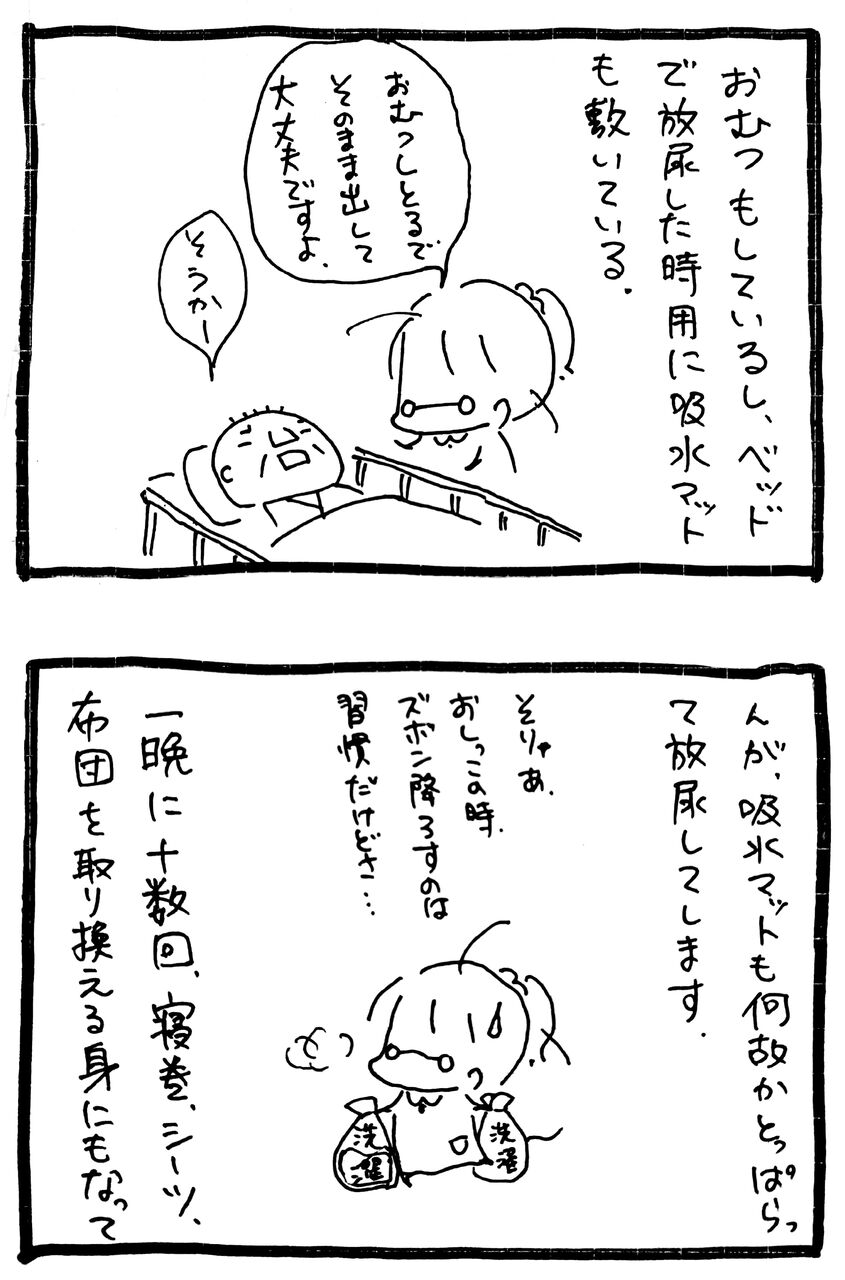 おむつもしているし、ベッド
で放尿した時用に吸水マット
も敷いている.
おむつしとるで
そのまま出して
大丈夫ですよ.
そうかー
んが、吸水マットも何故かとっぱらっ
て放尿してします.
そりゃあ、
おしっこの時、
ズボン降ろすのは
習慣だけどさ…
洗濯
洗濯
一晩に十数回、寝巻、シーツ、
布団を取り換える身にもなって